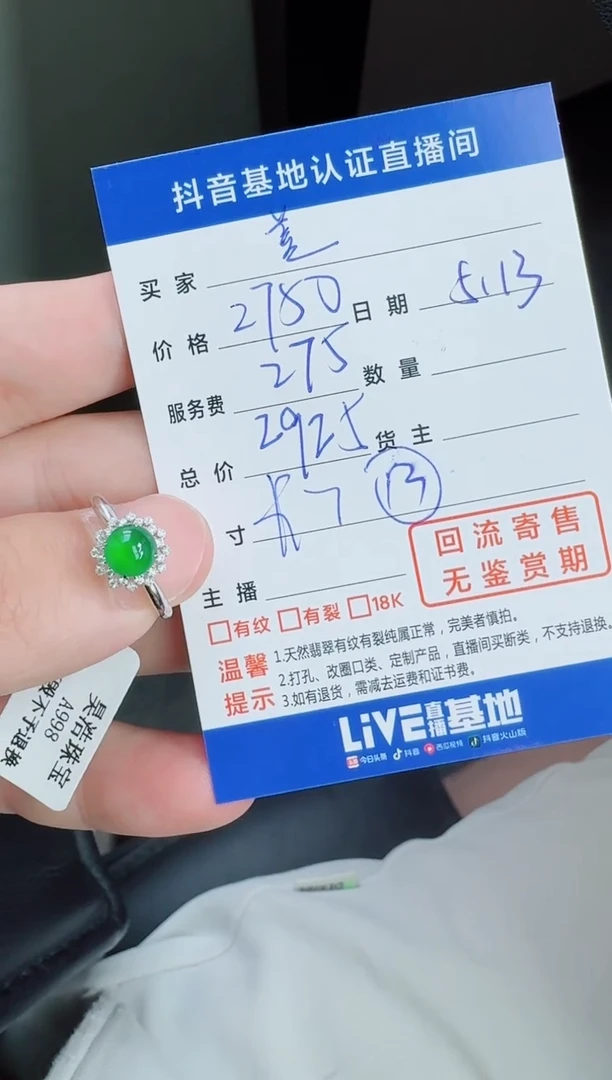 抖音基地认证直播间
买家
价格 2750 日期 5.13
服务费 275 数量
总价 2925 货主
寸 7 13
主播
回流寄售
无鉴赏期
有纹 有裂 18K
温馨提示
1.天然翡翠有纹有裂纯属正常，完美者慎拍。
2.打孔、改圈口类、定制产品，直播间买断类，不支持退换。
3.如有退货，需减去运费和证书费。
LiVE直播基地
今日头条 抖音 西瓜视频 抖音火山版
昊岩珠宝
A998
不予退换